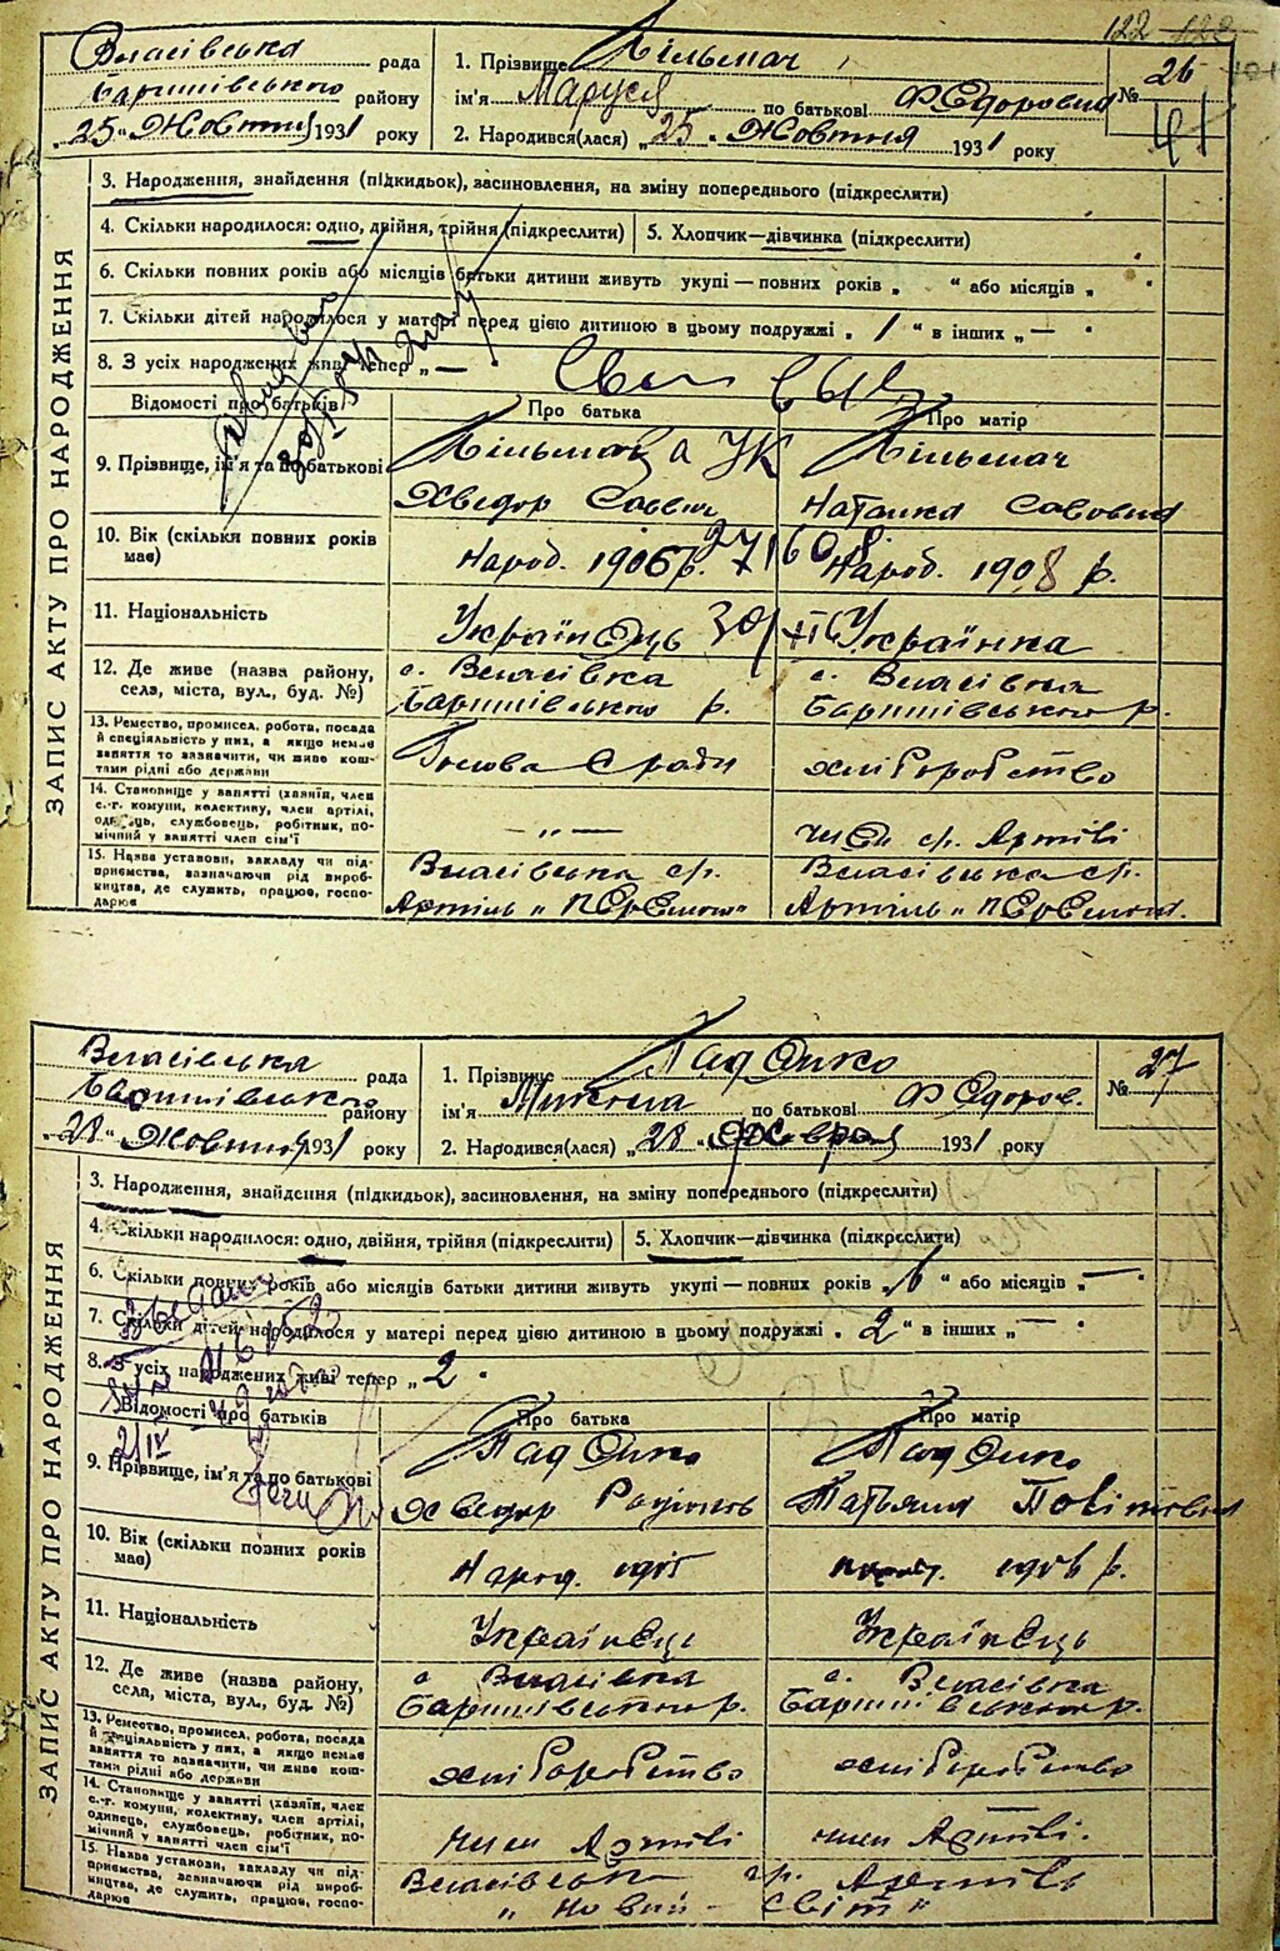 122
Власівська рада
Баришівського району
"25" Жовтня 1931 року
1. Прізвище Вільмач
ім'я Маруся по батькові Федоровна
2. Народився(лася) "25" Жовтня 1931 року
№ 26
41
ЗАПИС АКТУ ПРО НАРОДЖЕННЯ
3. Народження, знайдення (підкидьок), засиновлення, на зміну попереднього (підкреслити)
4. Скільки народилося: одно, двійня, трійня (підкреслити)
5. Хлопчик—дівчинка (підкреслити)
6. Скільки повних років або місяців батьки дитини живуть укупі — повних років „ “ або місяців „ “
7. Скільки дітей народилося у матері перед цією дитиною в цьому подружжі „ 1 “ в інших „ — “
8. З усіх народжених живі тепер „ — “
Відомості про батьків
Про батька
Про матір
9. Прізвище, ім'я та по батькові
Вільмач
Хведор Савич
Вільмач
Наталка Савовна
10. Вік (скільки повних років має)
Народ. 1906 р.
Народ. 1908 р.
11. Національність
Українець
Українка
12. Де живе (назва району, села, міста, вул., буд. №)
с. Власівка
Баришівського р.
с. Власівка
Баришівського р.
13. Ремество, промисел, робота, посада й спеціяльність у них, а якщо немає заняття то зазначити, чи живе коштами рідні або держави
Голова с/ради
хліборобство
14. Становище у занятті (хазяїн, член с.-г. комуни, колективу, член артілі, одинець, службовець, робітник, помічний у занятті член сім'ї
— „ —
член с/г. Артілі
15. Назва установи, закладу чи підприємства, зазначаючи рід виробництва, де служить, працює, господарює
Власівська с/г.
Артіль „Перемога“
Власівська с/г.
Артіль „Перемога“.
Власівська рада
Баришівського району
"28" Жовтня 1931 року
1. Прізвище Падалко
ім'я Микола по батькові Федоров.
2. Народився(лася) "28" 1931 року
№ 27
ЗАПИС АКТУ ПРО НАРОДЖЕННЯ
3. Народження, знайдення (підкидьок), засиновлення, на зміну попереднього (підкреслити)
4. Скільки народилося: одно, двійня, трійня (підкреслити)
5. Хлопчик—дівчинка (підкреслити)
6. Скільки повних років або місяців батьки дитини живуть укупі — повних років „ 6 “ або місяців „ — “
7. Скільки дітей народилося у матері перед цією дитиною в цьому подружжі „ 2 “ в інших „ — “
8. З усіх народжених живі тепер „ 2 “
Відомості про батьків
Про батька
Про матір
9. Прізвище, ім'я та по батькові
Падалко
Хведор
Падалко
Татьяна
10. Вік (скільки повних років має)
Народ.
1906 р.
11. Національність
Українець
Українець
12. Де живе (назва району, села, міста, вул., буд. №)
с Власівка
Баришівського р.
с. Власівка
Баришівського р.
13. Ремество, промисел, робота, посада й спеціяльність у них, а якщо немає заняття то зазначити, чи живе коштами рідні або держави
хліборобство
хліборобство
14. Становище у занятті (хазяїн, член с.-г. комуни, колективу, член артілі, одинець, службовець, робітник, помічний у занятті член сім'ї
член Артілі
член Артілі.
15. Назва установи, закладу чи підприємства, зазначаючи рід виробництва, де служить, працює, господарює
Власівська с/г. Артіль
„Новий - Світ“